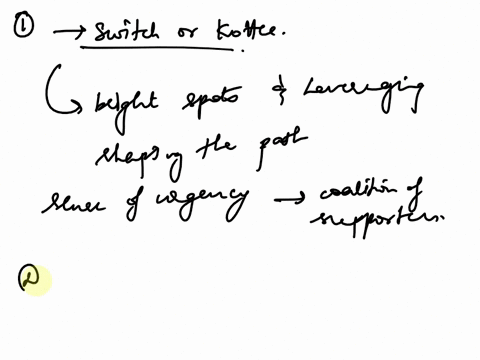 ① → Switch or Kotter.
↳ bright spots & Leveraging
shaping the path
sense of urgency → coalition of
supporters.
②